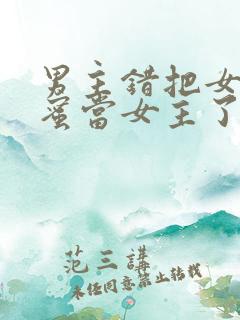 男主錯把女
蜜當女主了
范三講
未经同意禁止转载